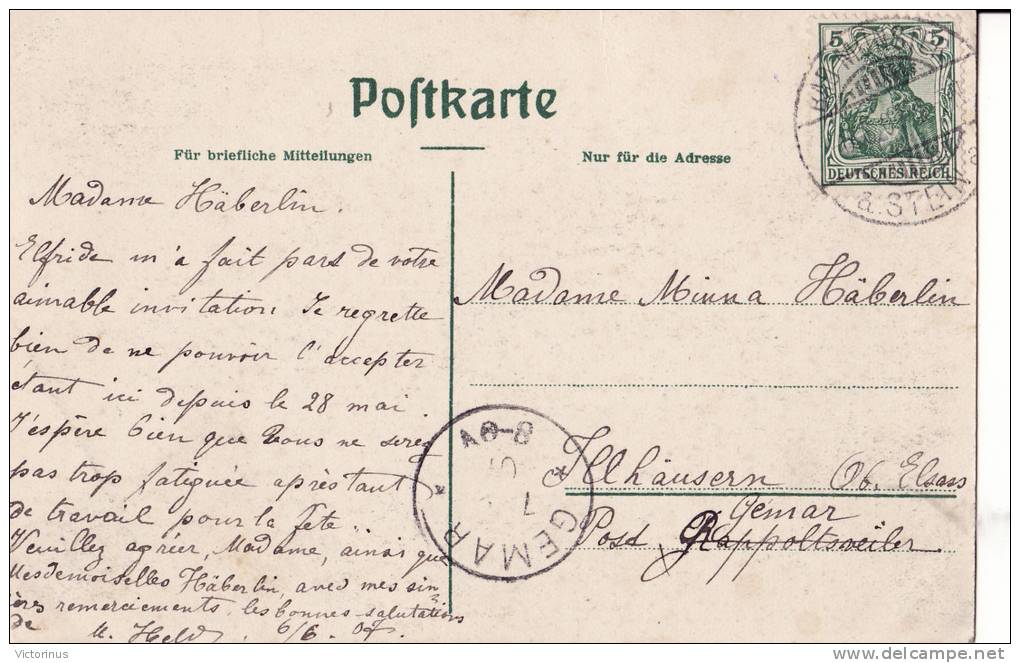 Postkarte
Für briefliche Mitteilungen
Nur für die Adresse
5 5
DEUTSCHES REICH
a. STEIN
Madame Häberlin.
Elfride m'a fait part de votre
aimable invitation. Je regrette
bien de ne pouvoir l'accepter
étant ici depuis le 28 mai.
J'espère bien que vous ne serez
pas trop fatiguée après tant
de travail pour la fête..
Veuillez agréer, Madame, ainsi que
Mesdemoiselles Häberlin, avec mes sin
cères remerciements, les bonnes salutations
de M. Held. 6/6. 07.
Madame Minna Häberlin
Illhäusern Ob. Elsass
Gémar
Post Rappoltsweiler
GEMAR
7
8-9V
Victorinus
www.delcampe.net